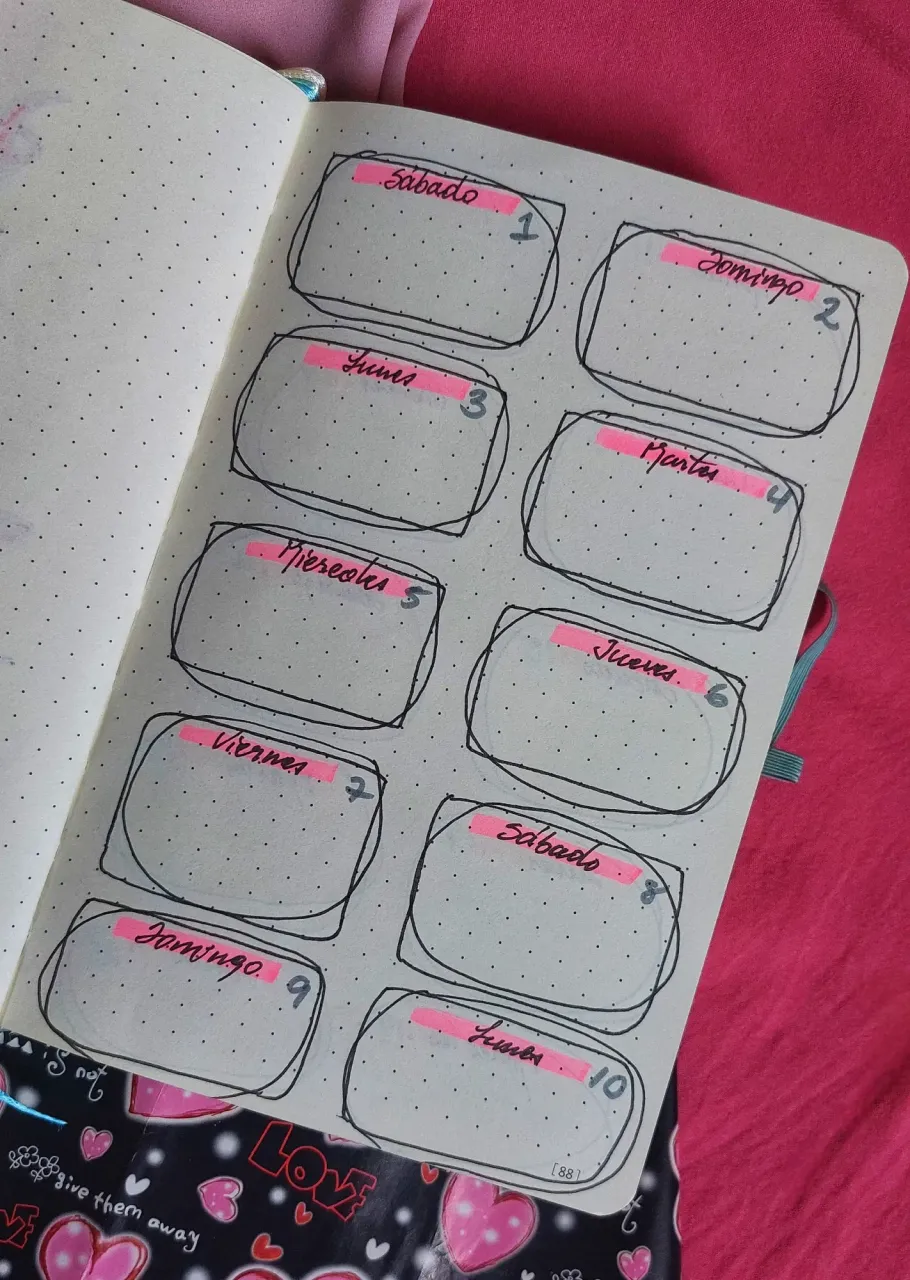 Sábado
1
Domingo
2
Lunes
3
Martes
4
Miercoles
5
Jueves
6
Viernes
7
Sábado
8
Domingo
9
Lunes
10
[88]
is not
LOVE
give them away